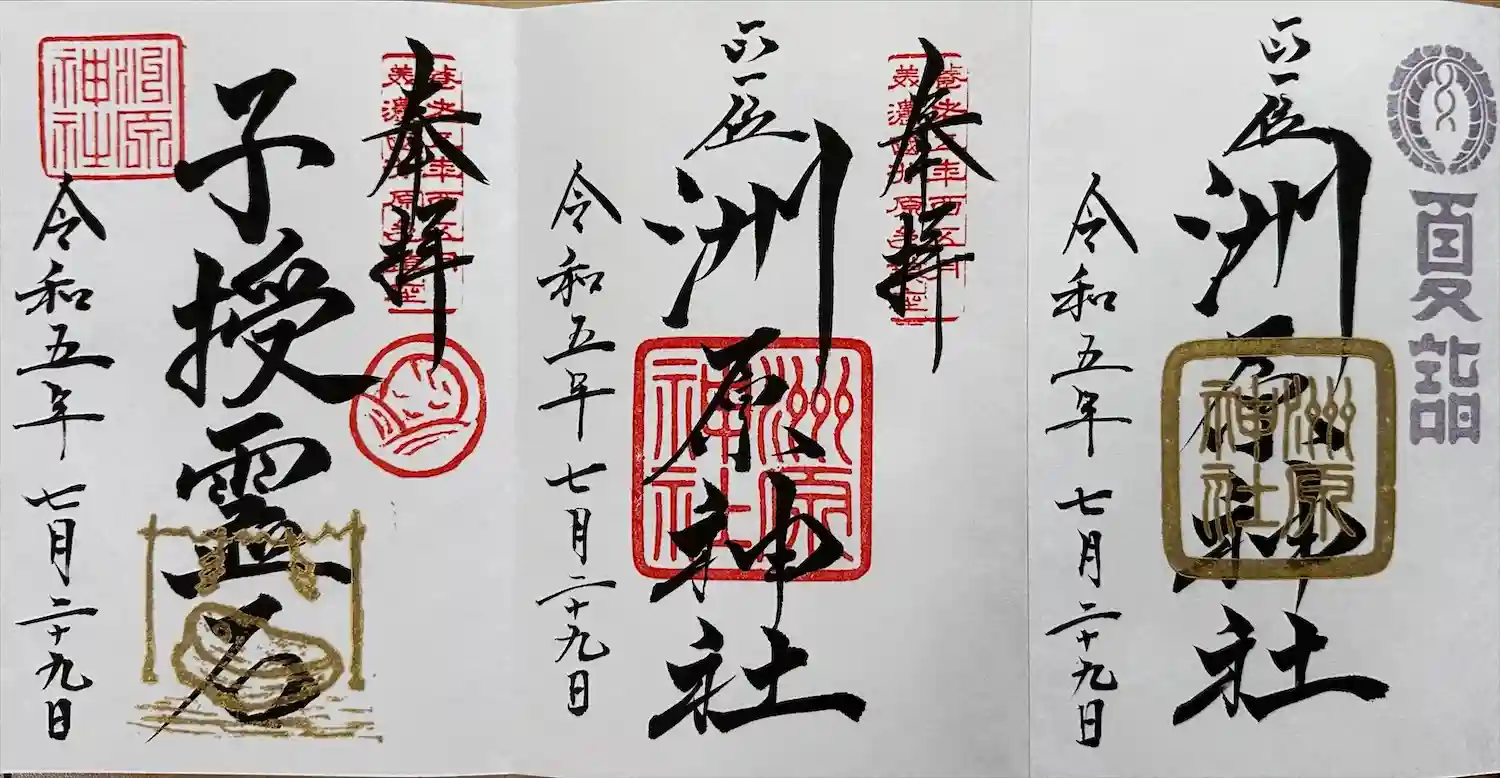 夏詣
正一位
洲原神社
洲原神社
令和五年 七月二十九日
奉拝
正一位
洲原神社
洲原神社
令和五年 七月二十九日
奉拝
子授霊石
洲原神社
令和五年 七月二十九日